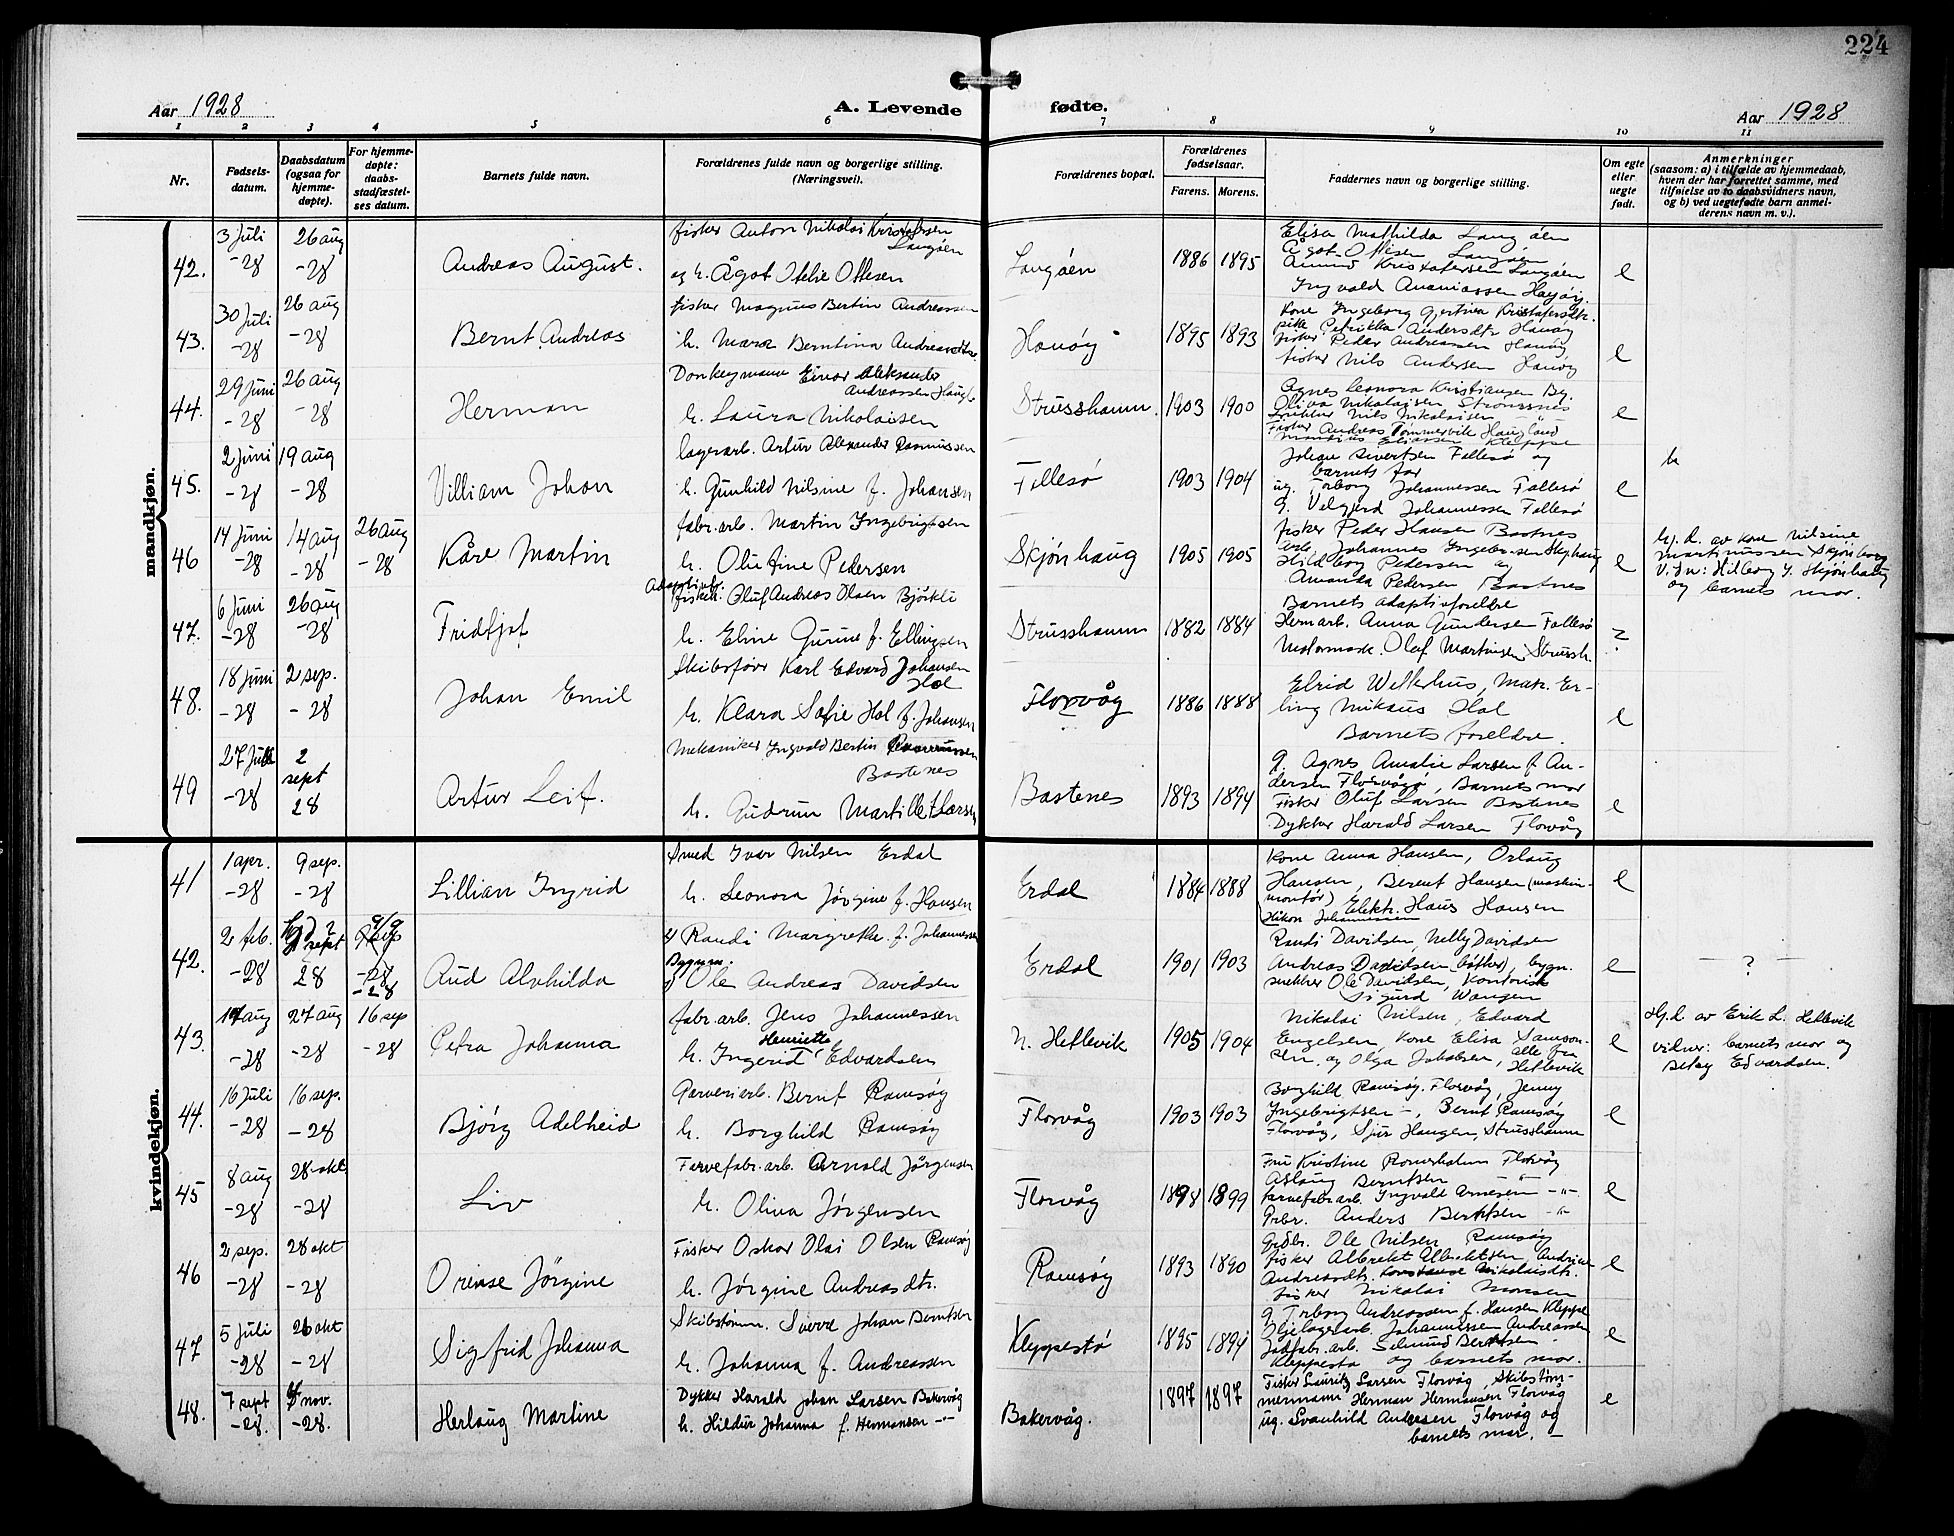 224
Aar 1928
A. Levende fødte.
Aar 1928
1 2 3 4 5 6 7 8 9 10 11
Nr.
Fødsels-
datum.
Daabsdatum
(ogsaa for
hjemme-
døpte).
For hjemme-
døpte:
daabs-
stadfæstel-
ses datum.
Barnets fulde navn.
Forældrenes fulde navn og borgerlige stilling.
(Næringsvei).
Forældrenes bopæl.
Forældrenes
fødselsaar.
Farens. Morens.
Faddernes navn og borgerlige stilling.
Om egte
eller
uegte
født.
Anmerkninger
(saasom: a) i tilfælde av hjemmedaab,
hvem der har forrettet samme, med
tilføielse av to daabsvidners navn,
og b) ved uegtefødte barn anmel-
derens navn m. v.).
mandkjøn.
42.
3 juli
-28
26 aug
-28
Andreas August.
fisker Anton Nikolai Kristofersen
Langøen
og h. Ågot Otelie Ottesen
Langøen
1886 1895
Elisa Mathilda Langøen
Ågot Ottesen Langøen
Amund Kristofersen Langøen
Ingvald Ananiassen
e
43.
30 juli
-28
26 aug
-28
Bernt Andreas
fisker Magnus Bertin Andreassen
h. Mara Berntina
Hanøy
1895 1893
Kone Ingeborg Gjertina Kristofersdtr.
pike Petrikka Andersdtr Hanøy
fisker Peder Andreassen Hanøy
fisker Nils Andersen Hanøy
e
44.
29 juni
-28
26 aug
-28
Herman
Donkeymann Einar Aleksander
Andreassen
h. Laura Nikolaisen
Strusshamn.
1903 1900
Agnes Leonora Kristiansen
Oliva Nikolaisen
Nils Nikolaisen
Fisker Andreas Tømmervik Haugland
Kleppe
e
45.
2 juni
-28
19 aug
-28
Villiam Johan
lagerarb. Artur Alexander Rasmussen
h. Gunhild Nilsine f. Johansen
Follesø
1903 1904
Johan Sivertsen Follesø og
barnets far
ug. Torborg Johannessen Follesø
g. Velgjerd Johannessen Follesø
e
46
14 juni
-28
14 aug
-28
26 aug
-28
Kåre Martin
fabr.arb. Martin Ingebrigtsen
h. Olufine Pedersen
Skjønhaug
1905 1905
fisker Peder Hansen Bastnes
arb. Johannes
Hildborg Pedersen og
Amanda Pedersen Bastnes
e
Hj.d. av kone Nilsine
Martinussen Skjønhaug
og barnets mor.
47.
6 juni
-28
26 aug
-28
Fridtjof
Adoptivfor.
fisker: Oluf Andreas Olsen Bjørkli
h. Eline Gurine f. Ellingsen
Strusshamn
1882 1884
Barnets adoptivforeldre
Anna Gundersen Follesø
Motormask. Oluf Martinsen Strussh.
?
48.
18 juni
-28
2 sep.
-28
Johan Emil
Skibsfører Karl Edvard Johansen
Hol
h. Klara Sofie Hol f. Johansen
Florvåg
1886 1888
Elrid Wetterhus, Mask. Er-
ling Mikaus Hol
Barnets foreldre.
e
49
27
-28
2
sept
28
Artur Leif.
Mekaniker Ingvald Bertin Rasmussen
Bastenes
h. Gudrun Martille f. Larsen
Bastenes
1893 1894
g. Agnes Amalie Larsen f. An-
dersen Florvåg, Barnets mor
Fisker Oluf Larsen Bastenes
Dykker Harald Larsen Florvåg
e
kvindekjøn.
41
1 apr.
-28
9 sep.
-28
Lillian Ingrid
Smed Ivar Nilsen Erdal
h. Leonora Jørgine f. Hansen
Erdal
1884 1888
Kone Anna Hansen, Oslaug
Hansen, Berent Hansen (maskin-
montør) Elektr. Hans Hansen
Håkon Johannessen
e
42.
2 feb.
-28
28
-28
Aud Alvhilda
Randi Margrethe f. Johannessen
Bygnm.
Ole Andreas Davidsen
Erdal
1901 1903
Randi Davidsen, Nelly Davidsen
Andreas Davidsen (bøtker), bygn.
snekker Ole Davidsen, Kontorist
Sigurd Wangen
e
— ? —
43.
aug
-28
27 aug
-28
16 sep
-28
Petra Johanna
fabr.arb. Jens Johannessen
Henriette
h. Ingerid Edvardsen
N. Hetlevik
1905 1904
Nikolai Nilsen, Edvard
Engelsen, Kone Elisa Samson-
sen, og Olga Jakobsen, alle fra
Hetlevik
e
Hj.d. av Erik L. Hetlevik
vidner: barnets mor og
Betsy Edvardsen.
44.
16 juli
-28
16 sep.
-28
Bjørg Adelheid
Garveriarb. Bernt Ramsøy
h. Borghild Ramsøy
Florvåg
1903 1903
Borghild Ramsøy. Florvåg, Jenny
Ingebrigtsen -, Bernt Ramsøy
Florvåg, Sjur Haugen, Strusshamn
e
45
8 aug
-28
28 okt
-28
Liv
Farvefabr.arb. Arnold Jørgensen
h. Oliva Jørgensen
Florvåg
1898 1899
Fru Kristine Florvåg
Aslaug Berntsen
farvefabr.arb. Ingvald Arnesen -"-
Anders Berntsen -"-
e
46
2 sep.
-28
28 okt
-28
Orense Jørgine
Fisker Oskar Olai Olsen Ramsøy
h. Jørgine Andreasdtr.
Ramsøy
1893 1890
Grdbr. Ole Nilsen Ramsøy
fisker Albrekt Albrektsen, Andrine
Andreasdtr. Konstanse Nikolaisdtr.
fisker Nikolai Monsen
e
47
5 juli
-28
26 okt
-28
Sigfrid Johanna
Skibstømm. Sverre Johan Berntsen
h. Johanna f. Andreassen
Kleppestø
1895 1894
g. Torborg Andreassen f. Hansen Kleppe
Oljelagerarb. Johannessen Andreassen
Jodfabr.arb. Selmund Berntsen
Kleppestø og barnets mor.
e
48.
7 sept
-28.
nov.
-28.
Herlaug Martine
Dykker Harald Johan Larsen Bakervåg
h. Hildur Johanna f. Hermansen -"-
Bakervåg.
1897 1897
Fisker Lauritz Larsen Florvåg, Skibstøm-
mermann Herman Hermansen Florvåg
ug. Svanhild Andersen Florvåg og
barnets mor. -
e